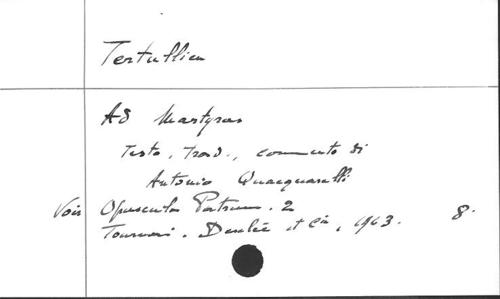 Tertullien
Ad Martyras
Testo, Trad., commento di
Antonio Quacquarelli
Voir Opuscula Patrum. 2
Tournai. Desclée et Cie, 1963. 8°.